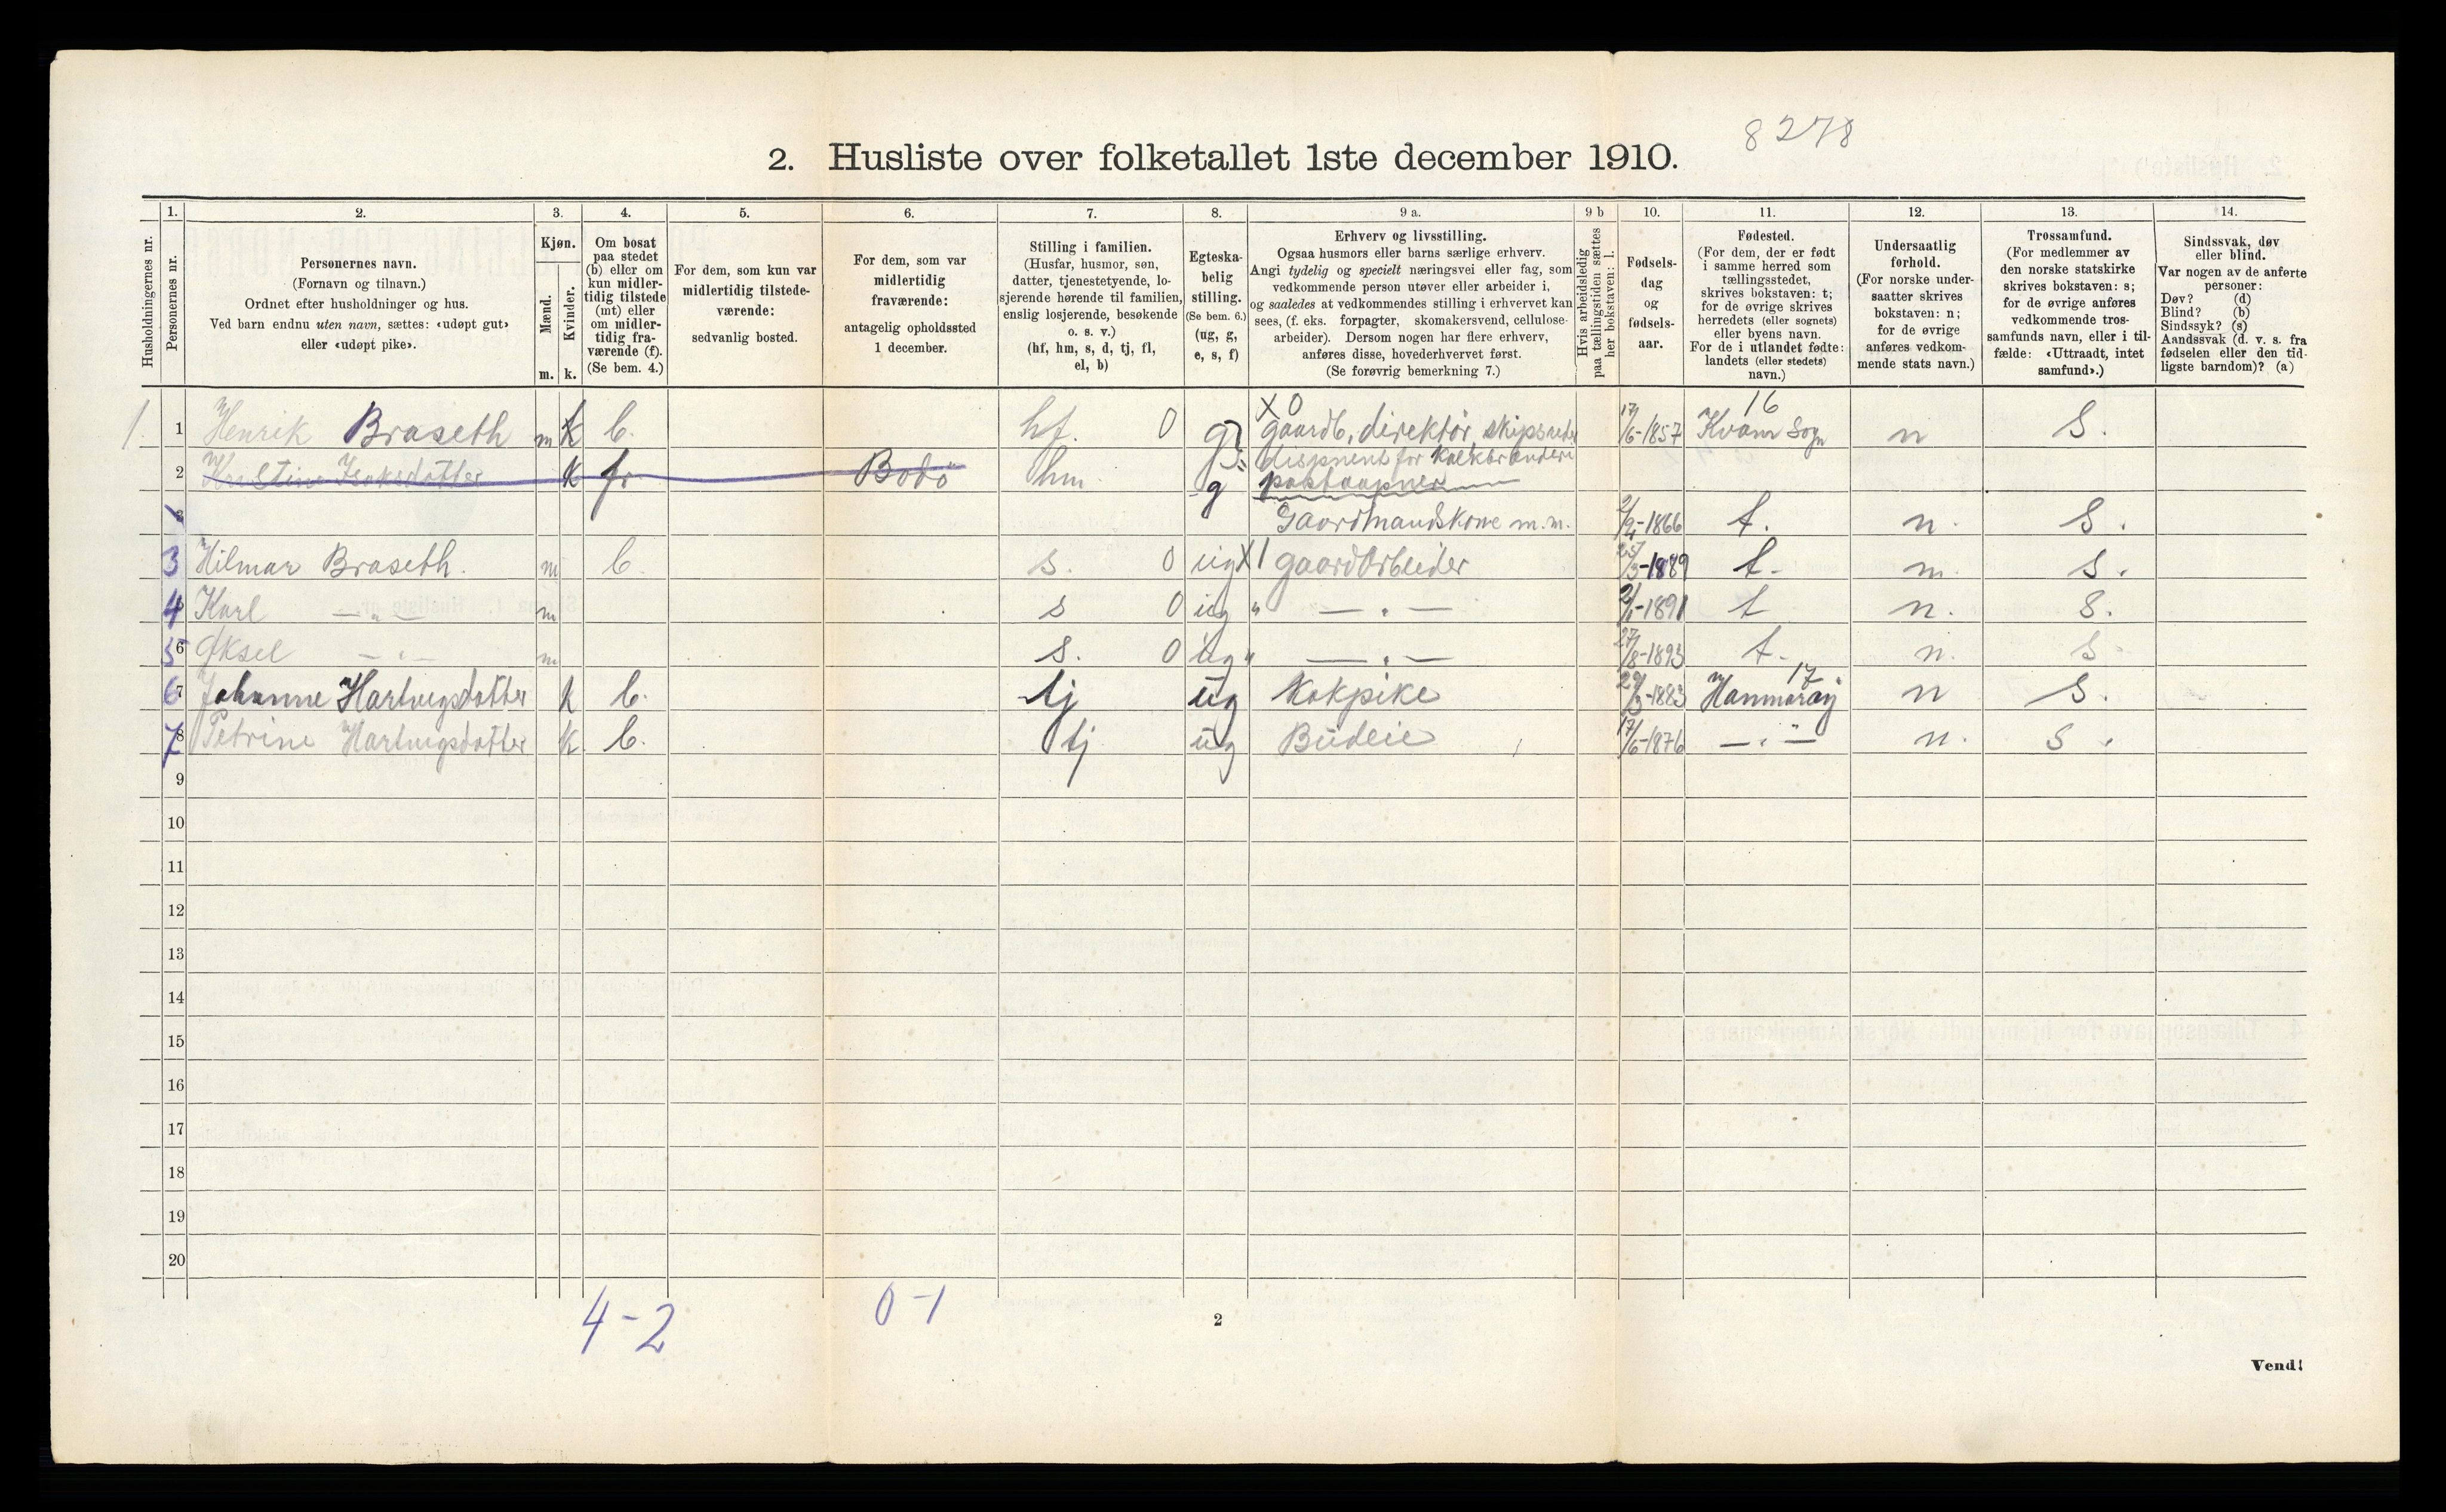 8278
2. Husliste over folketallet 1ste december 1910.
Husholdningernes nr.
1.
Personernes nr.
2.
Personernes navn.
(Fornavn og tilnavn.)
Ordnet efter husholdninger og hus.
Ved barn endnu uten navn, sættes: «udøpt gut»
eller «udøpt pike».
3.
Kjøn.
Mænd. Kvinder.
m. k.
4.
Om bosat
paa stedet
(b) eller om
kun midler-
tidig tilstede
(mt) eller
om midler-
tidig fra-
værende (f).
(Se bem. 4.)
5.
For dem, som kun var
midlertidig tilstede-
værende:
sedvanlig bosted.
6.
For dem, som var
midlertidig
fraværende:
antagelig opholdssted
1 december.
7.
Stilling i familien.
(Husfar, husmor, søn,
datter, tjenestetyende, lo-
sjerende hørende til familien,
enslig losjerende, besøkende
o. s. v.)
(hf, hm, s, d, tj, fl,
el, b)
8.
Egteska-
belig
stilling.
(Se bem. 6.)
(ug, g,
e, s, f)
9 a.
Erhverv og livsstilling.
Ogsaa husmors eller barns særlige erhverv.
Angi tydelig og specielt næringsvei eller fag, som
vedkommende person utøver eller arbeider i,
og saaledes at vedkommendes stilling i erhvervet kan
sees, (f. eks. forpagter, skomakersvend, cellulose-
arbeider). Dersom nogen har flere erhverv,
anføres disse, hovederhvervet først.
(Se forøvrig bemerkning 7.)
9 b
Hvis arbeidsledig
paa tællingstiden sættes
her bokstaven: l.
10.
Fødsels-
dag
og
fødsels-
aar.
11.
Fødested.
(For dem, der er født
i samme herred som
tællingsstedet,
skrives bokstaven: t;
for de øvrige skrives
herredets (eller sognets)
eller byens navn.
For de i utlandet fødte:
landets (eller stedets)
navn.)
12.
Undersaatlig
forhold.
(For norske under-
saatter skrives
bokstaven: n;
for de øvrige
anføres vedkom-
mende stats navn.)
13.
Trossamfund.
(For medlemmer av
den norske statskirke
skrives bokstaven: s;
for de øvrige anføres
vedkommende tros-
samfunds navn, eller i til-
fælde: «Uttraadt, intet
samfund».)
14.
Sindssvak, døv
eller blind.
Var nogen av de anførte
personer:
Døv? (d)
Blind? (b)
Sindssyk? (s)
Aandssvak (d. v. s. fra
fødselen eller den tid-
ligste barndom)? (a)
X0 16
1. 1 Henrik Braseth m k b. hf. 0 g gaardb, direktör, skipsreder 17/6-1857 Kvam Sogn n S.
disponent for Kalkbrænderi
2 Kristine Isaksdatter k fr Bodö hm g postaapner
3 Gaardmandskone m.m. 2/4-1866 t. n. S.
3 Hilmar Braseth. m b. s. 0 ug X1 gaardarbeider 25/3-1889 t. n. s.
4 Karl —„— m s 0 ug " —„— 2/1-1891 t n. s.
5 6 Aksel —„— m s. 0 ug " —„— 27/8-1893 t. n. s
17
6 7 Johanne Hartvigsdatter k b. tj ug Kokpike 29/3-1883 Hammeröy n S.
7 8 Petrine Hartvigsdatter k b. tj ug Budeie 17/6-1876 —„— n. S.
9
10
11
12
13
14
15
16
17
18
19
20
4-2 0-1
2
Vend!